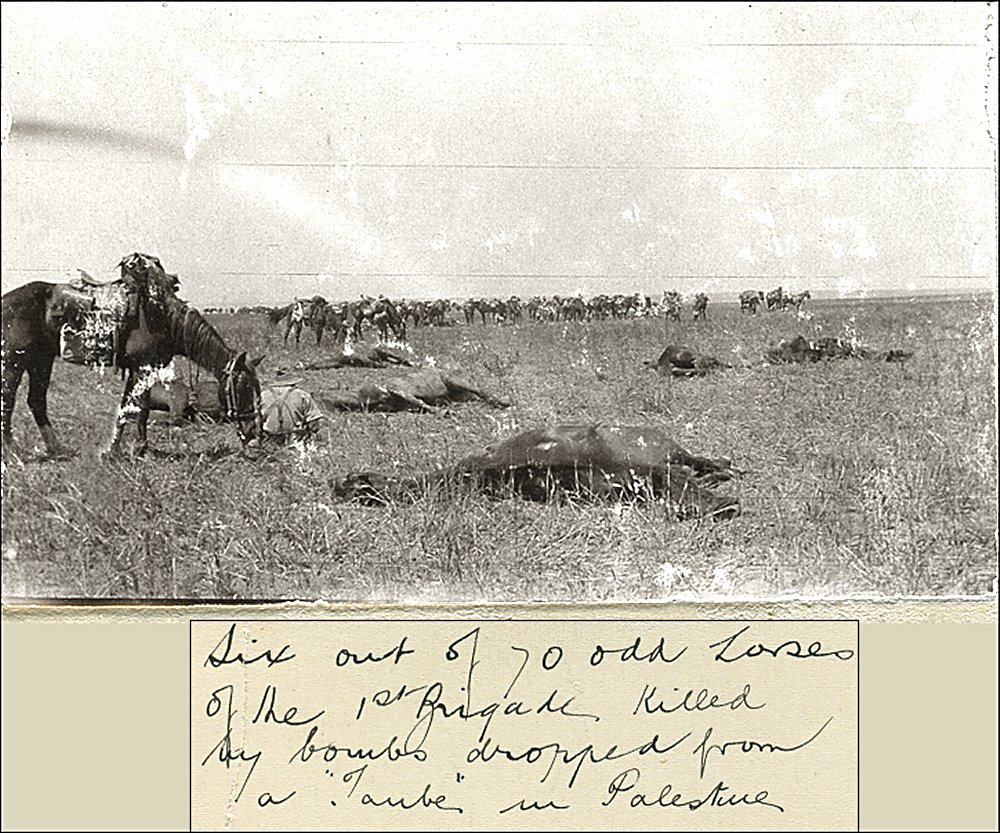 Six out of 70 odd horses
of the 1st Brigade Killed
by bombs dropped from
a "Taube" in Palestine